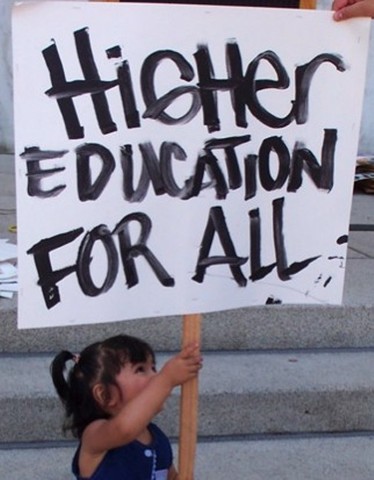 HiGHer
EDUCATION
FOR ALL